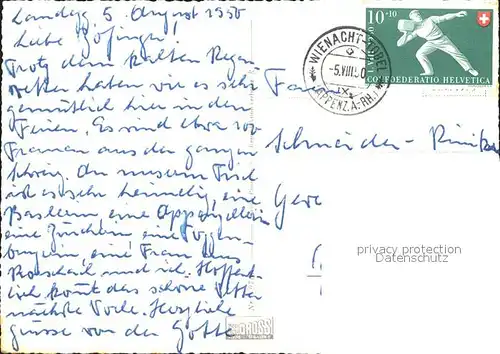 Landeg, 5. August 1950
Liebe Zofinger!
Trotz dem kalten Regen-
wetter haben wir es sehr
gemütlich hier in den
Ferien. Es sind etwa 100
Frauen aus der ganzen
Schweiz. An unserem Tisch
ist es sehr heimelig, eine
Baslerin, eine Appenzellerin
eine Zürcherin eine Toggen-
burgerin, eine Frau aus
Rorschach und ich. Hoffent-
lich kommt das schöne Wetter
nächste Woche. Herzliche
Grüsse von der Gotte
10+10
1. AUGUST 1950
CONFOEDERATIO HELVETICA
WIENACHT-TOBEL
-5.VIII.50
(APPENZ.A.-RH.)
Fam
Schneider-Rinike
Gere
privacy protection
GROSS